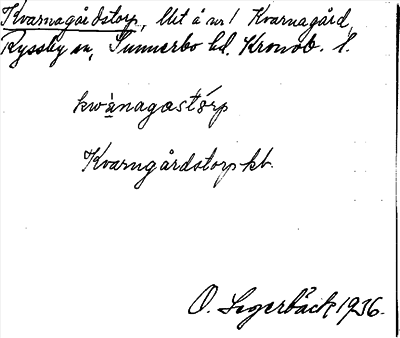 Kvarnagårdstorp, Utt å nr 1 Kvarnagård,
Ryssby sn, Sunnerbo hd. Kronob. l.
kwànagastórp
Kvarngårdstorp kb.
O. Segerbäck 1936.